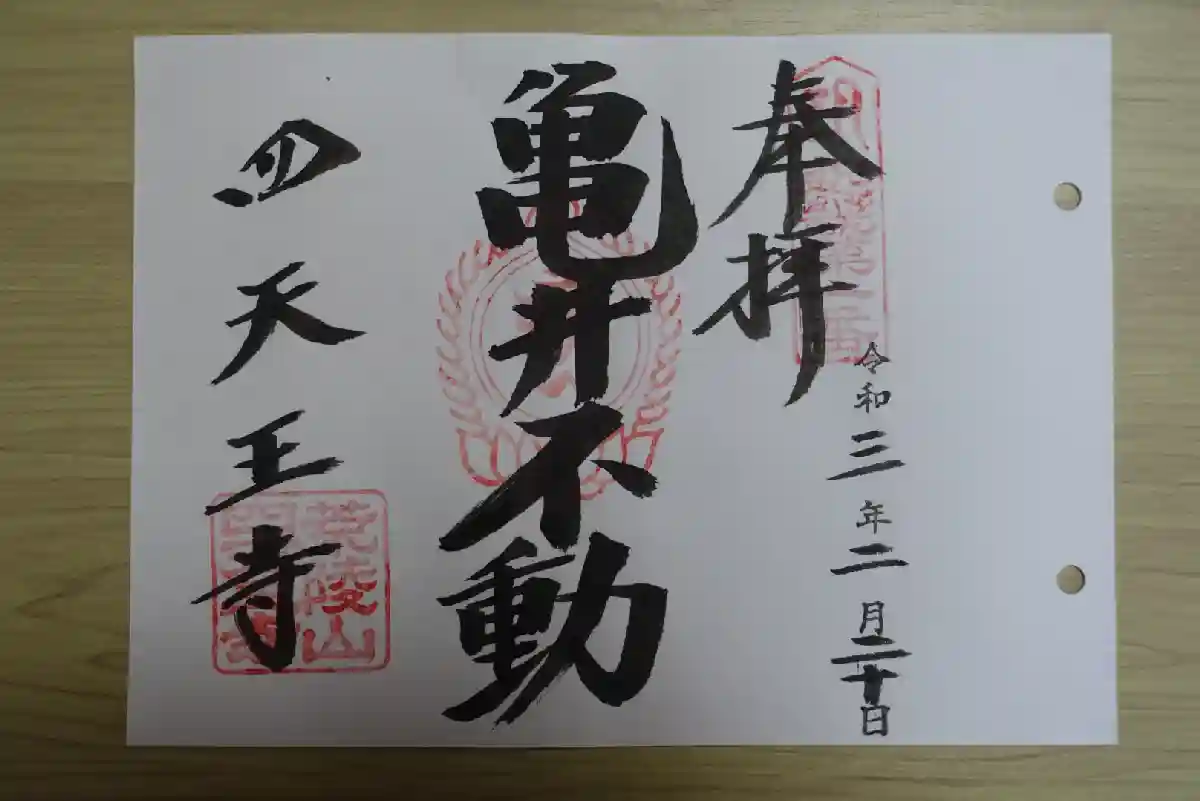 奉拝
令和三年二月二十日
亀井不動
四天王寺
荒陵山